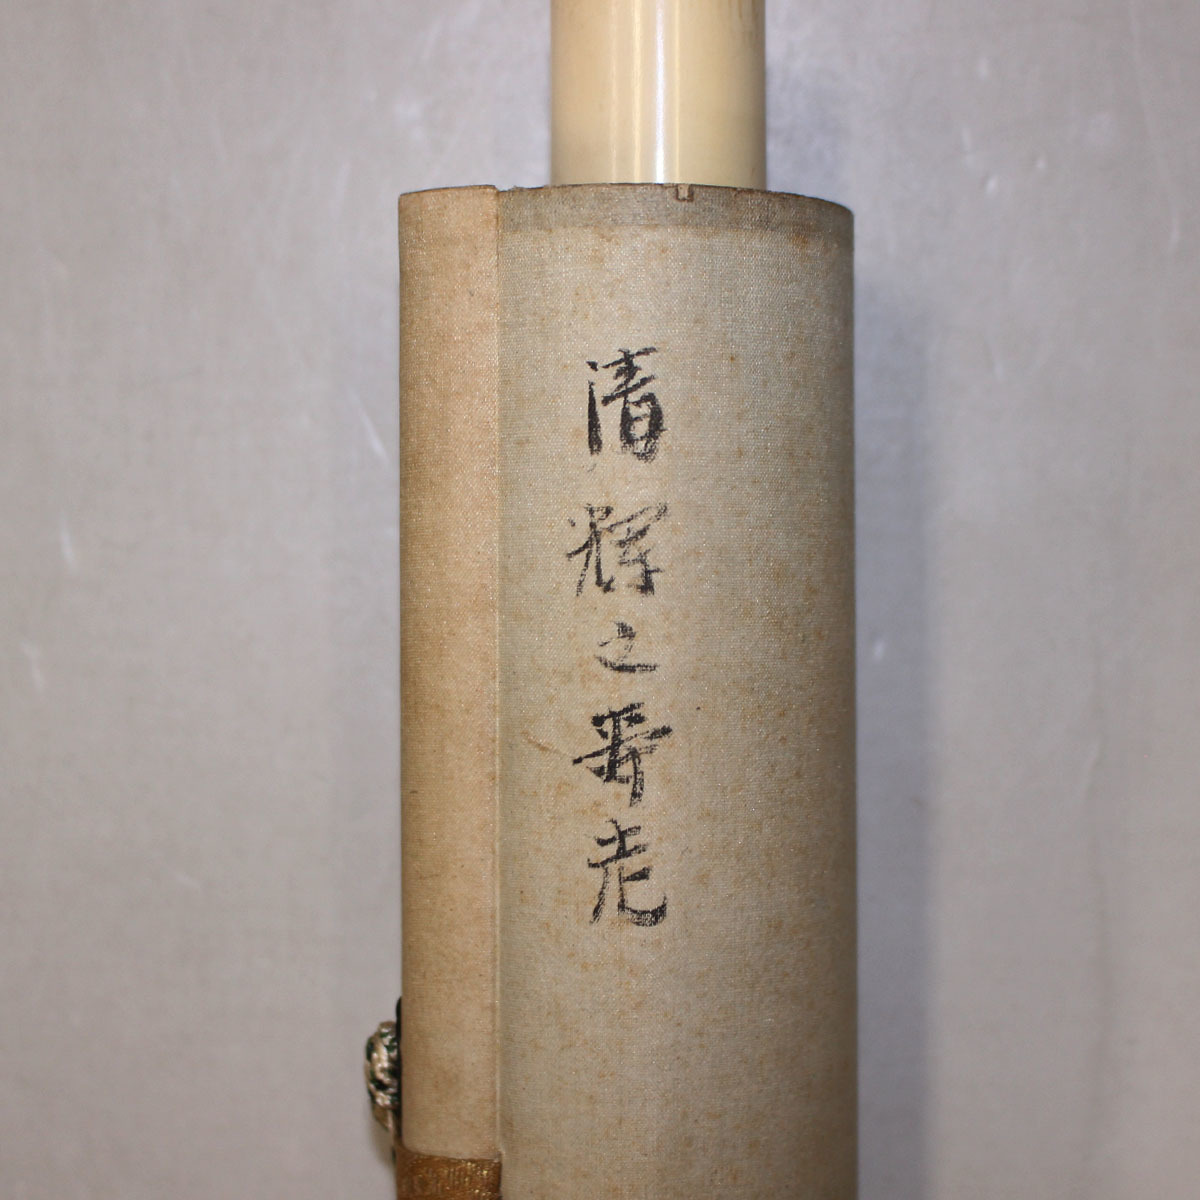 清輝之寿老